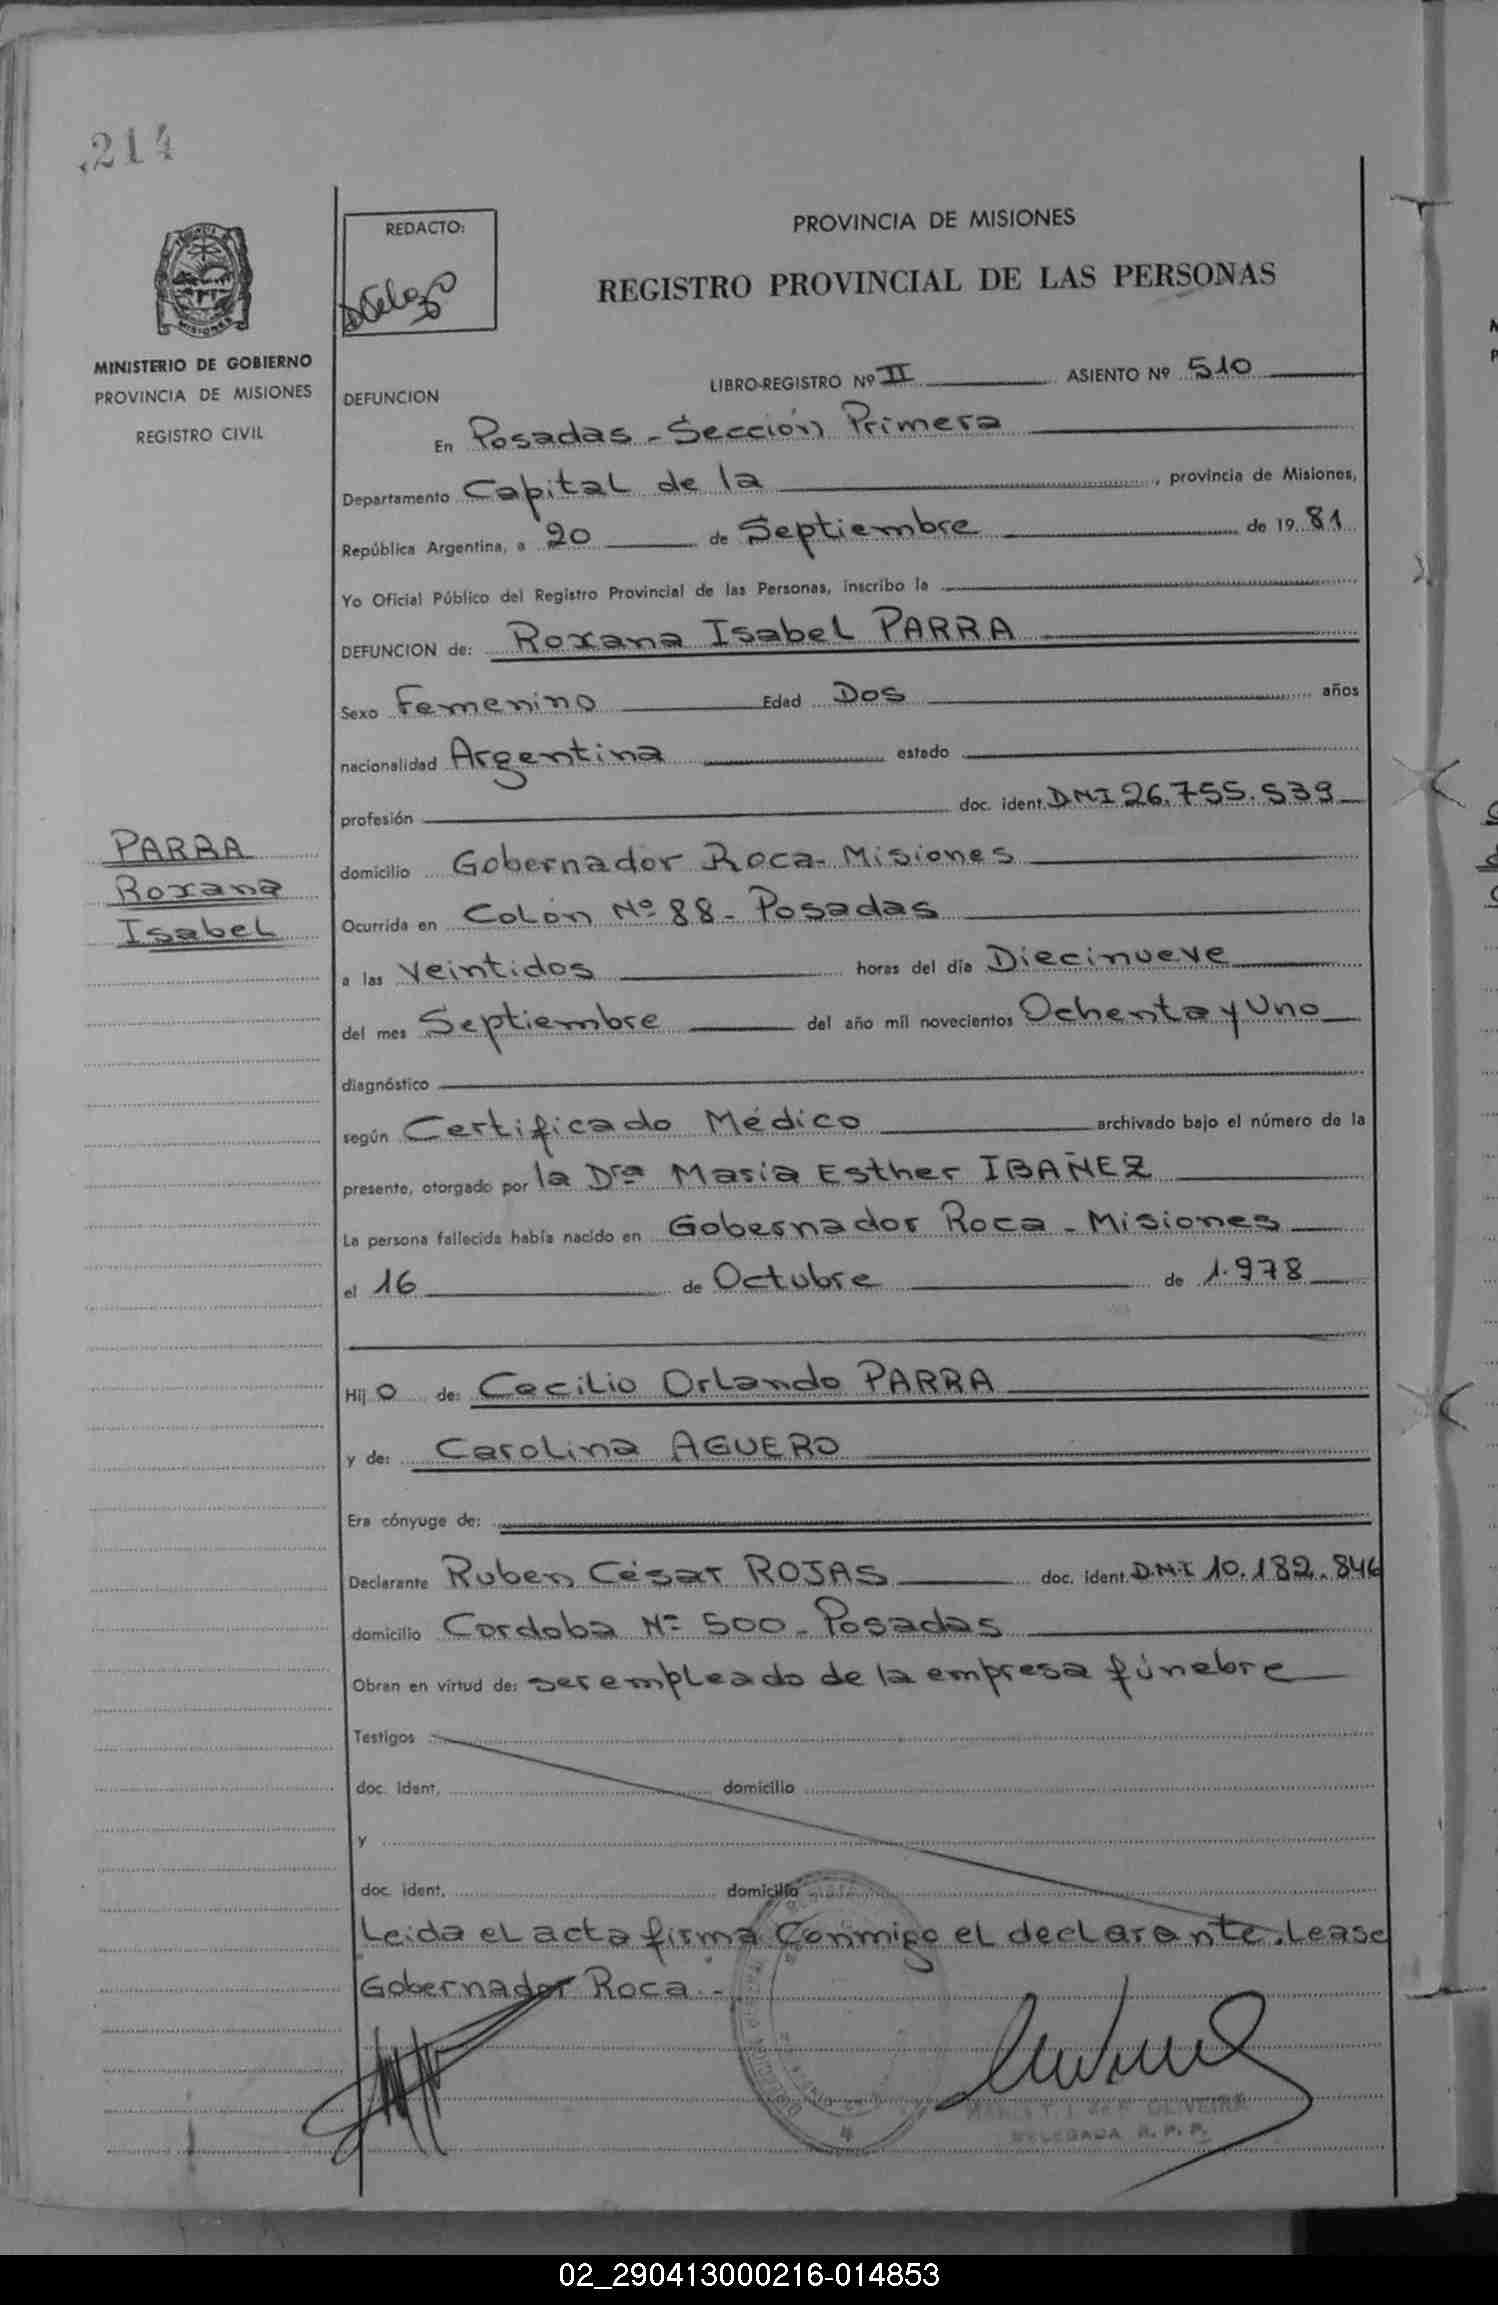 214
REDACTO:
PROVINCIA DE MISIONES
REGISTRO PROVINCIAL DE LAS PERSONAS
MISIONES
MINISTERIO DE GOBIERNO
PROVINCIA DE MISIONES
REGISTRO CIVIL
DEFUNCION
LIBRO-REGISTRO Nº II ASIENTO Nº 510
En Posadas - Sección Primera
Departamento Capital de la, provincia de Misiones,
República Argentina, a 20 de Septiembre de 1981
Yo Oficial Público del Registro Provincial de las Personas, inscribo la
DEFUNCION de: Roxana Isabel PARRA
Sexo Femenino Edad Dos años
nacionalidad Argentina estado
profesión doc. ident. DNI 26.755.539
PARRA
Roxana
Isabel
domicilio Gobernador Roca - Misiones
Ocurrida en Colón Nº 88 - Posadas
a las veintidos horas del día Diecinueve
del mes Septiembre del año mil novecientos Ochenta y Uno
diagnóstico
según Certificado Médico archivado bajo el número de la
presente, otorgado por la Dra María Esther IBAÑEZ
La persona fallecida había nacido en Gobernador Roca - Misiones
el 16 de Octubre de 1.978
Hijo de: Cecilio Orlando PARRA
y de: Carolina AGUERO
Era cónyuge de:
Declarante Ruben César ROJAS doc. ident. D.N.I 10.182.846
domicilio Cordoba Nº 500 - Posadas
Obran en virtud de: ser empleado de la empresa fúnebre
Testigos
doc. ident. domicilio
y
doc. ident. domicilio
Leida el acta firma Conmigo el declarante. Lease
Gobernador Roca.-
OLIVEIRA
DELEGADA R. P. P.
4
02_290413000216-014853